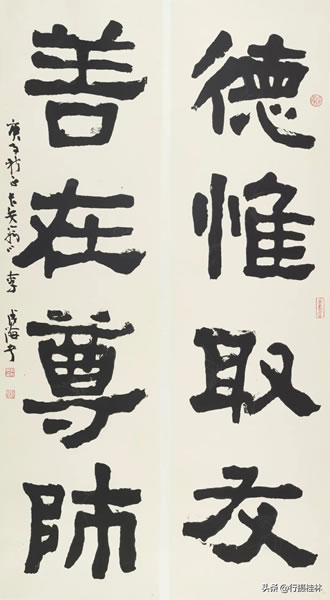 德惟取友
善在尊師
庚子 李 海
头条@行摄桂林